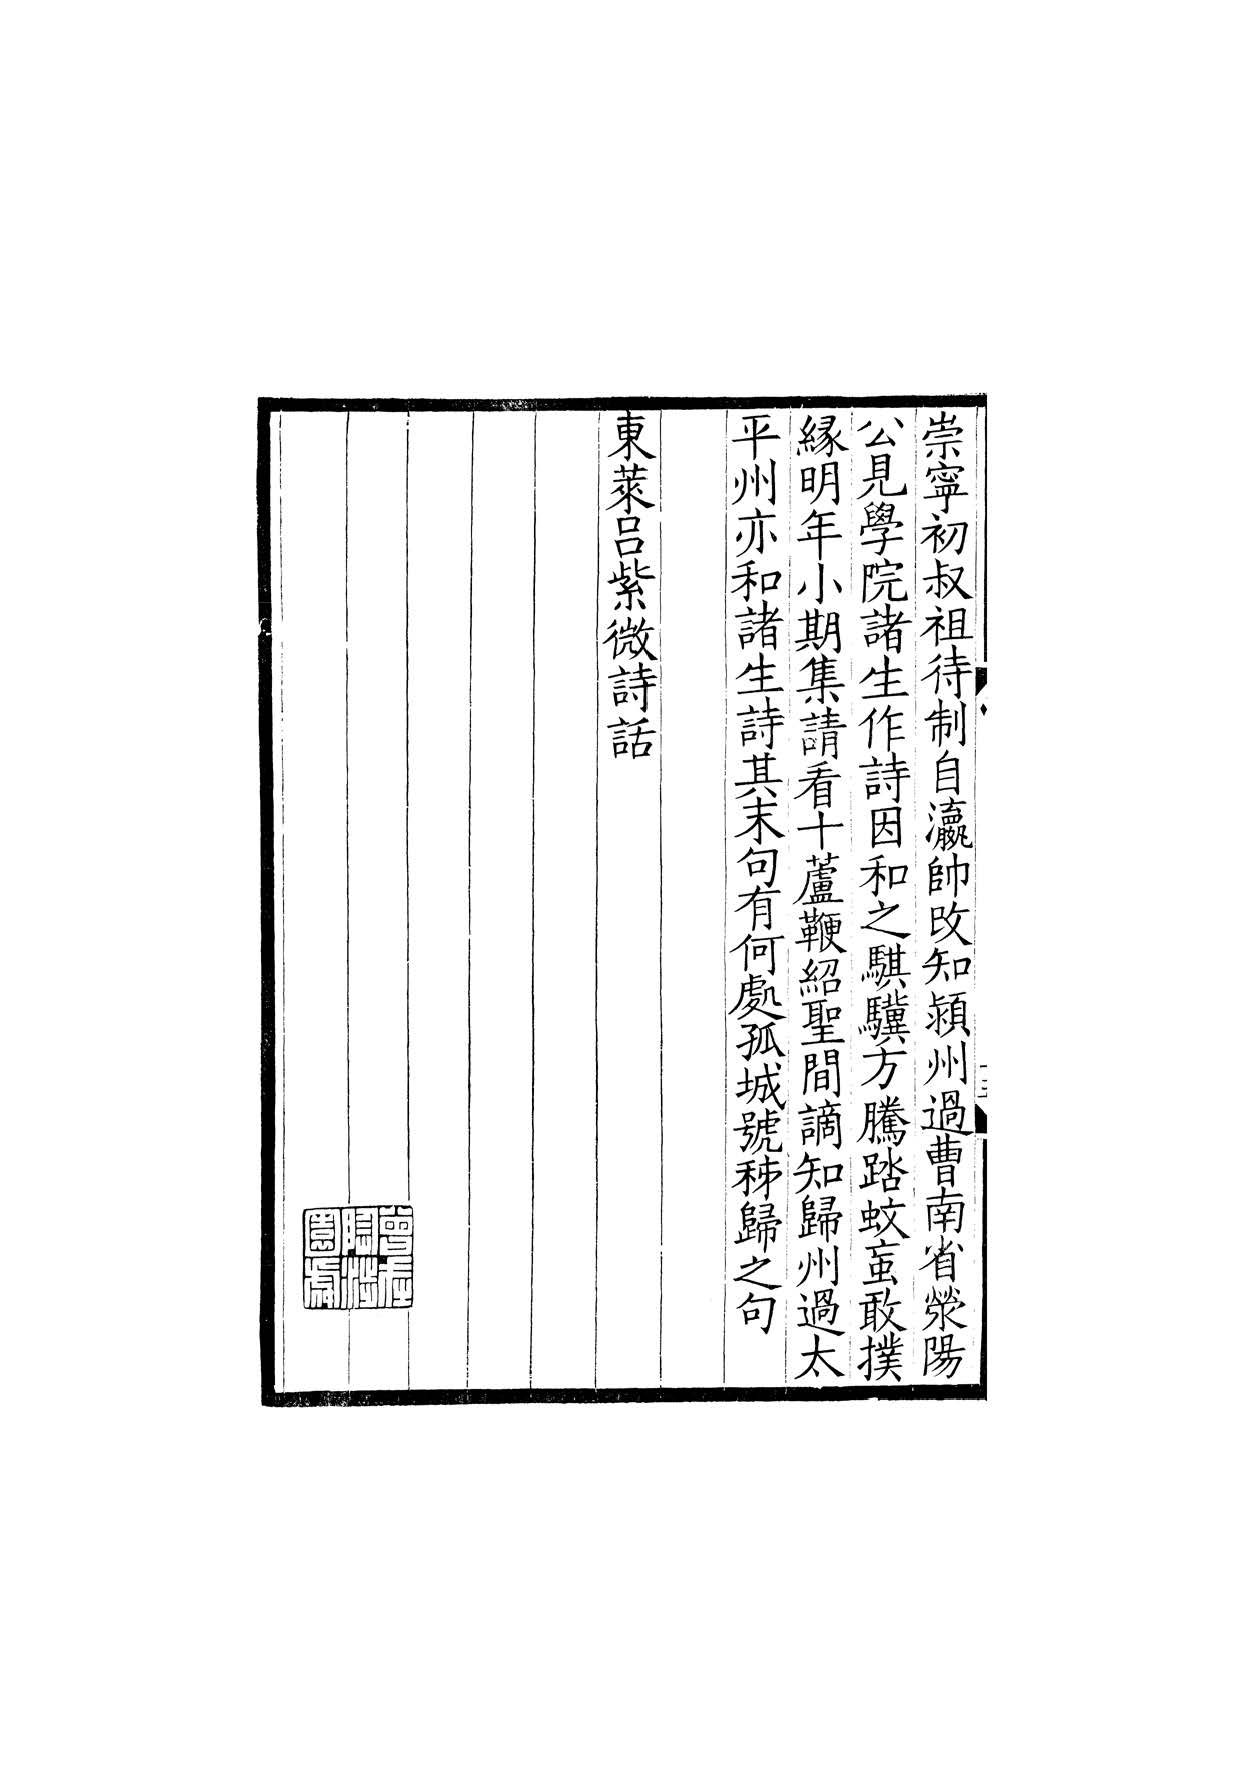 崇寧初叔祖待制自瀛帥改知潁州過曹南省滎陽
公見學院諸生作詩因和之騏驥方騰踏蚊䖟敢撲
緣明年小期集請看十蘆鞭紹聖間謫知歸州過太
平州亦和諸生詩其末句有何處孤城號秭歸之句
東萊呂紫微詩話